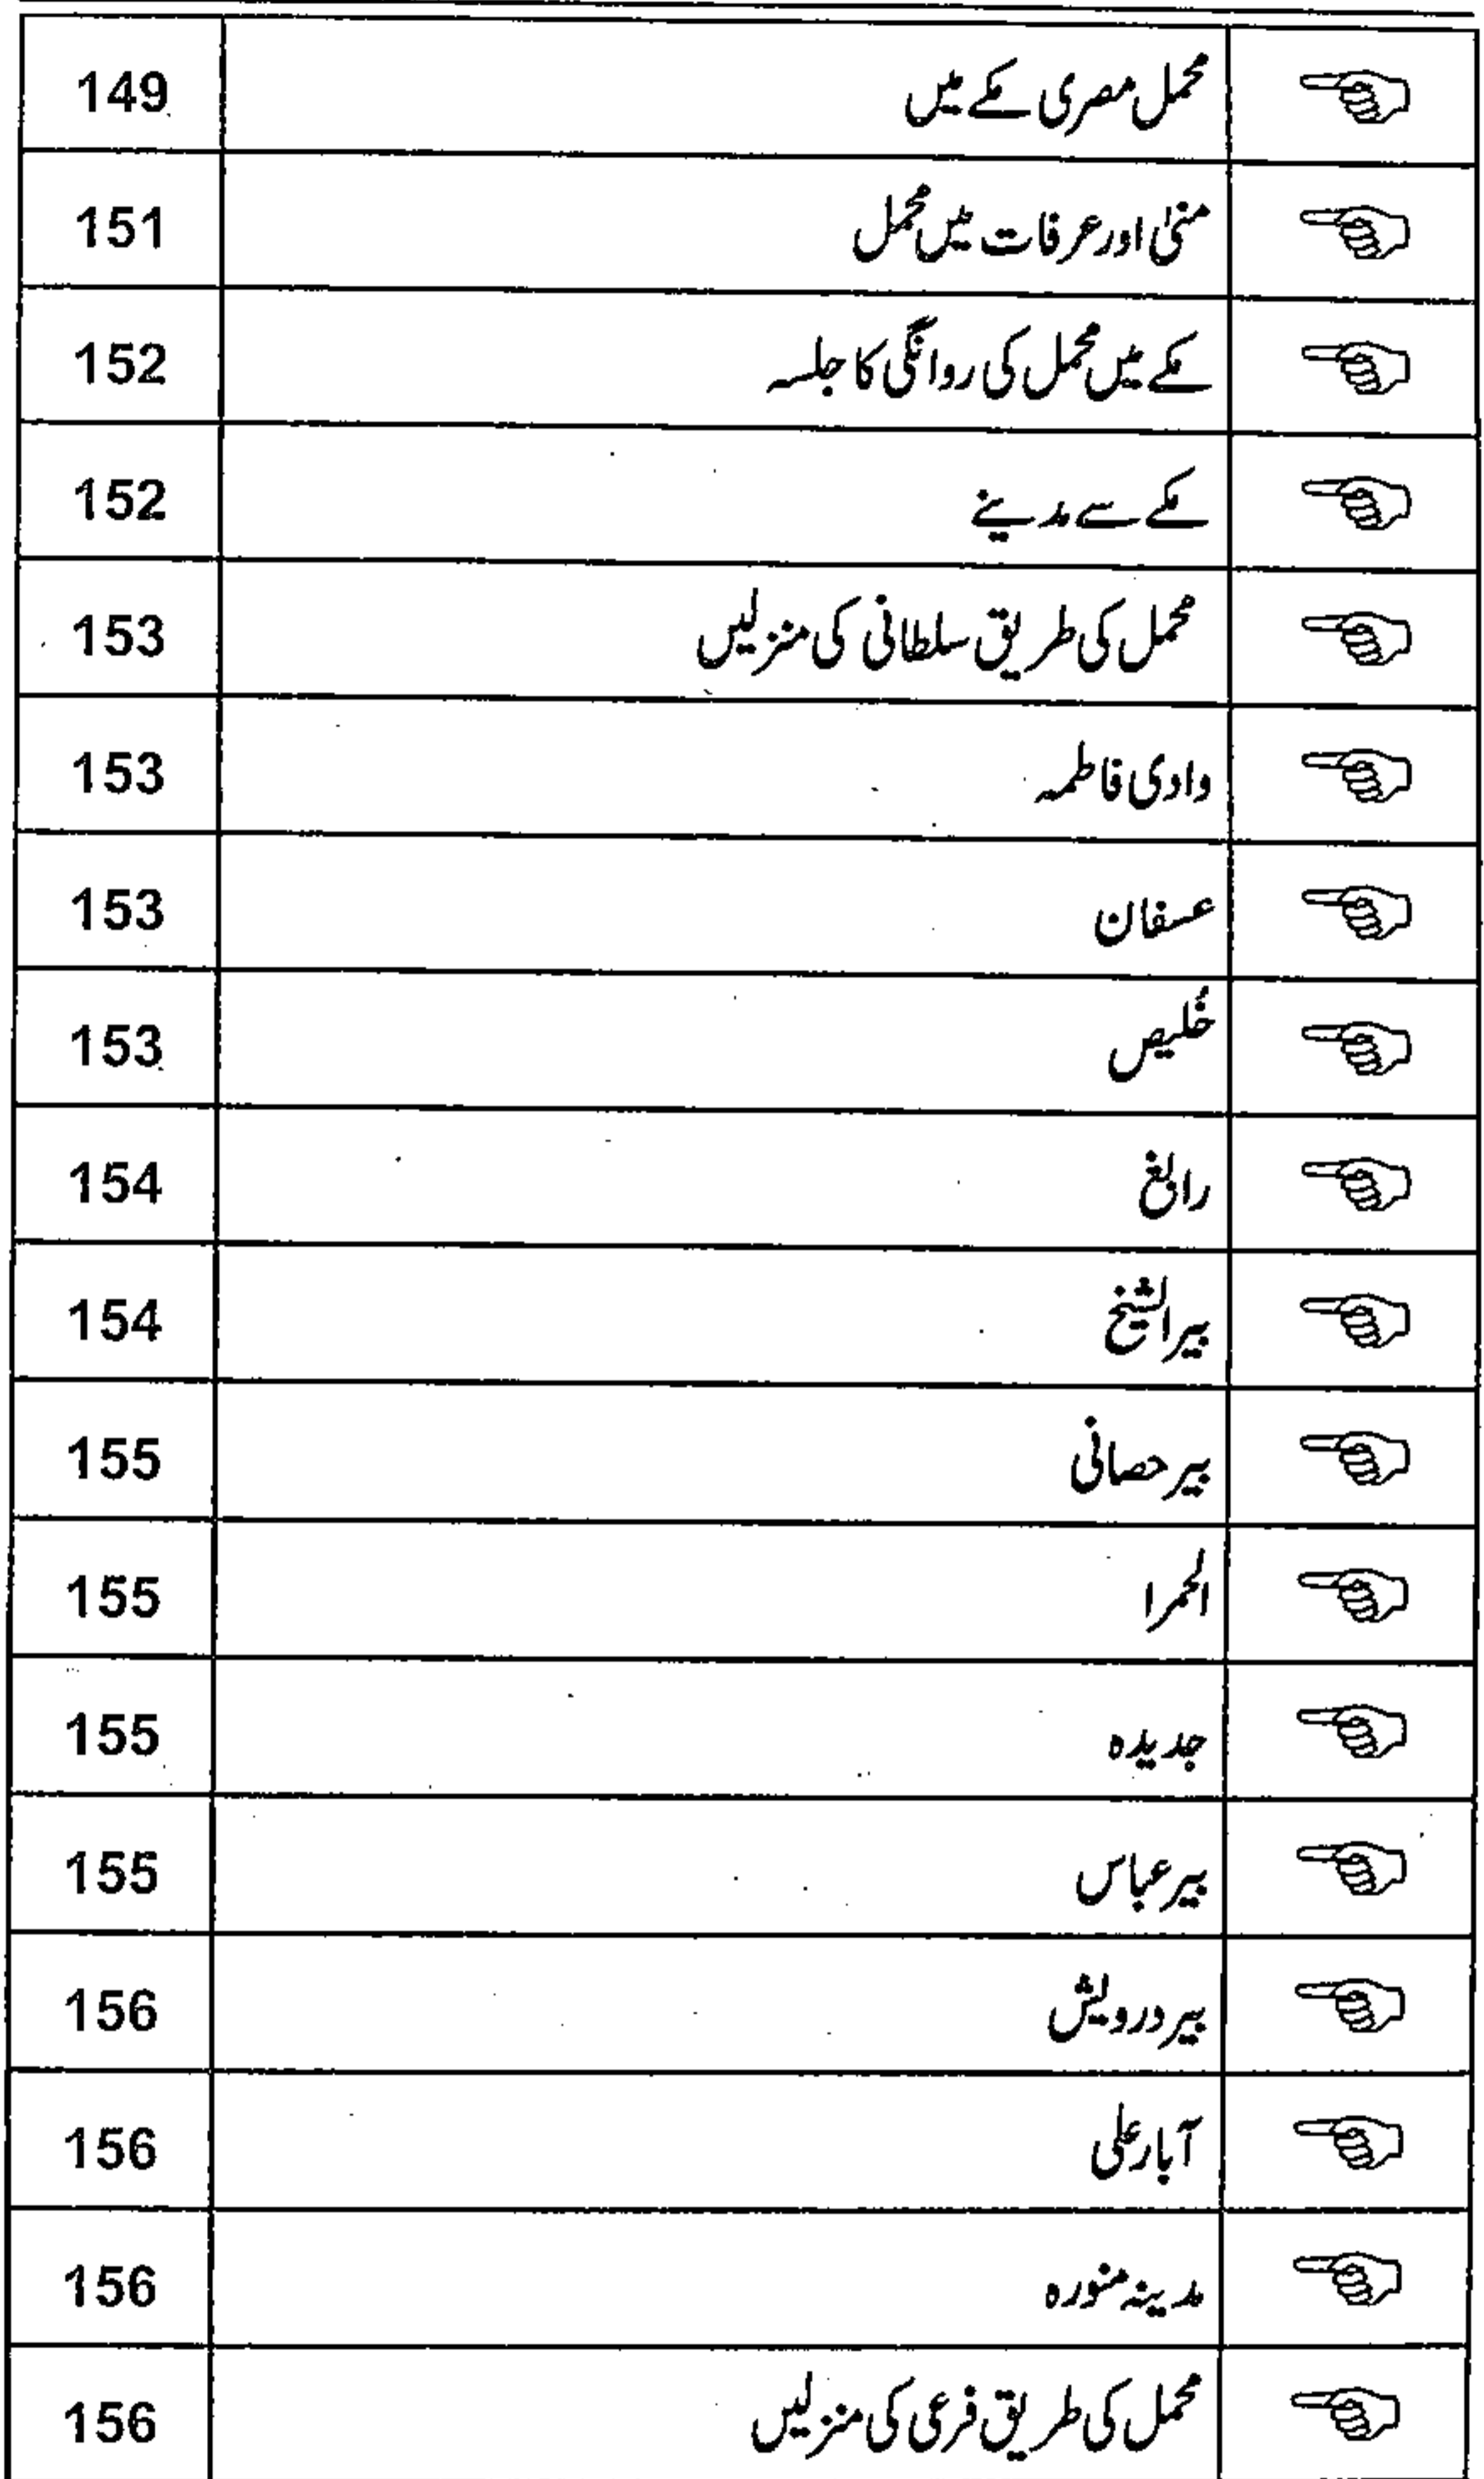 محمل مصری مکے میں 149
منیٰ اور عرفات میں محمل 151
مکے میں محمل کی روانگی کا جلسہ 152
مکے سے مدینے 152
محمل کی طریق سلطانی کی منزلیں 153
وادی فاطمہ 153
عسفان 153
خُلیص 153
رابغ 154
بیر الشیخ 154
بیر حصانی 155
الحمرا 155
جدیدہ 155
بیر عباس 155
بیر درویش 156
آبار علی 156
مدینہ منورہ 156
محمل کی طریق فرعی کی منزلیں 156